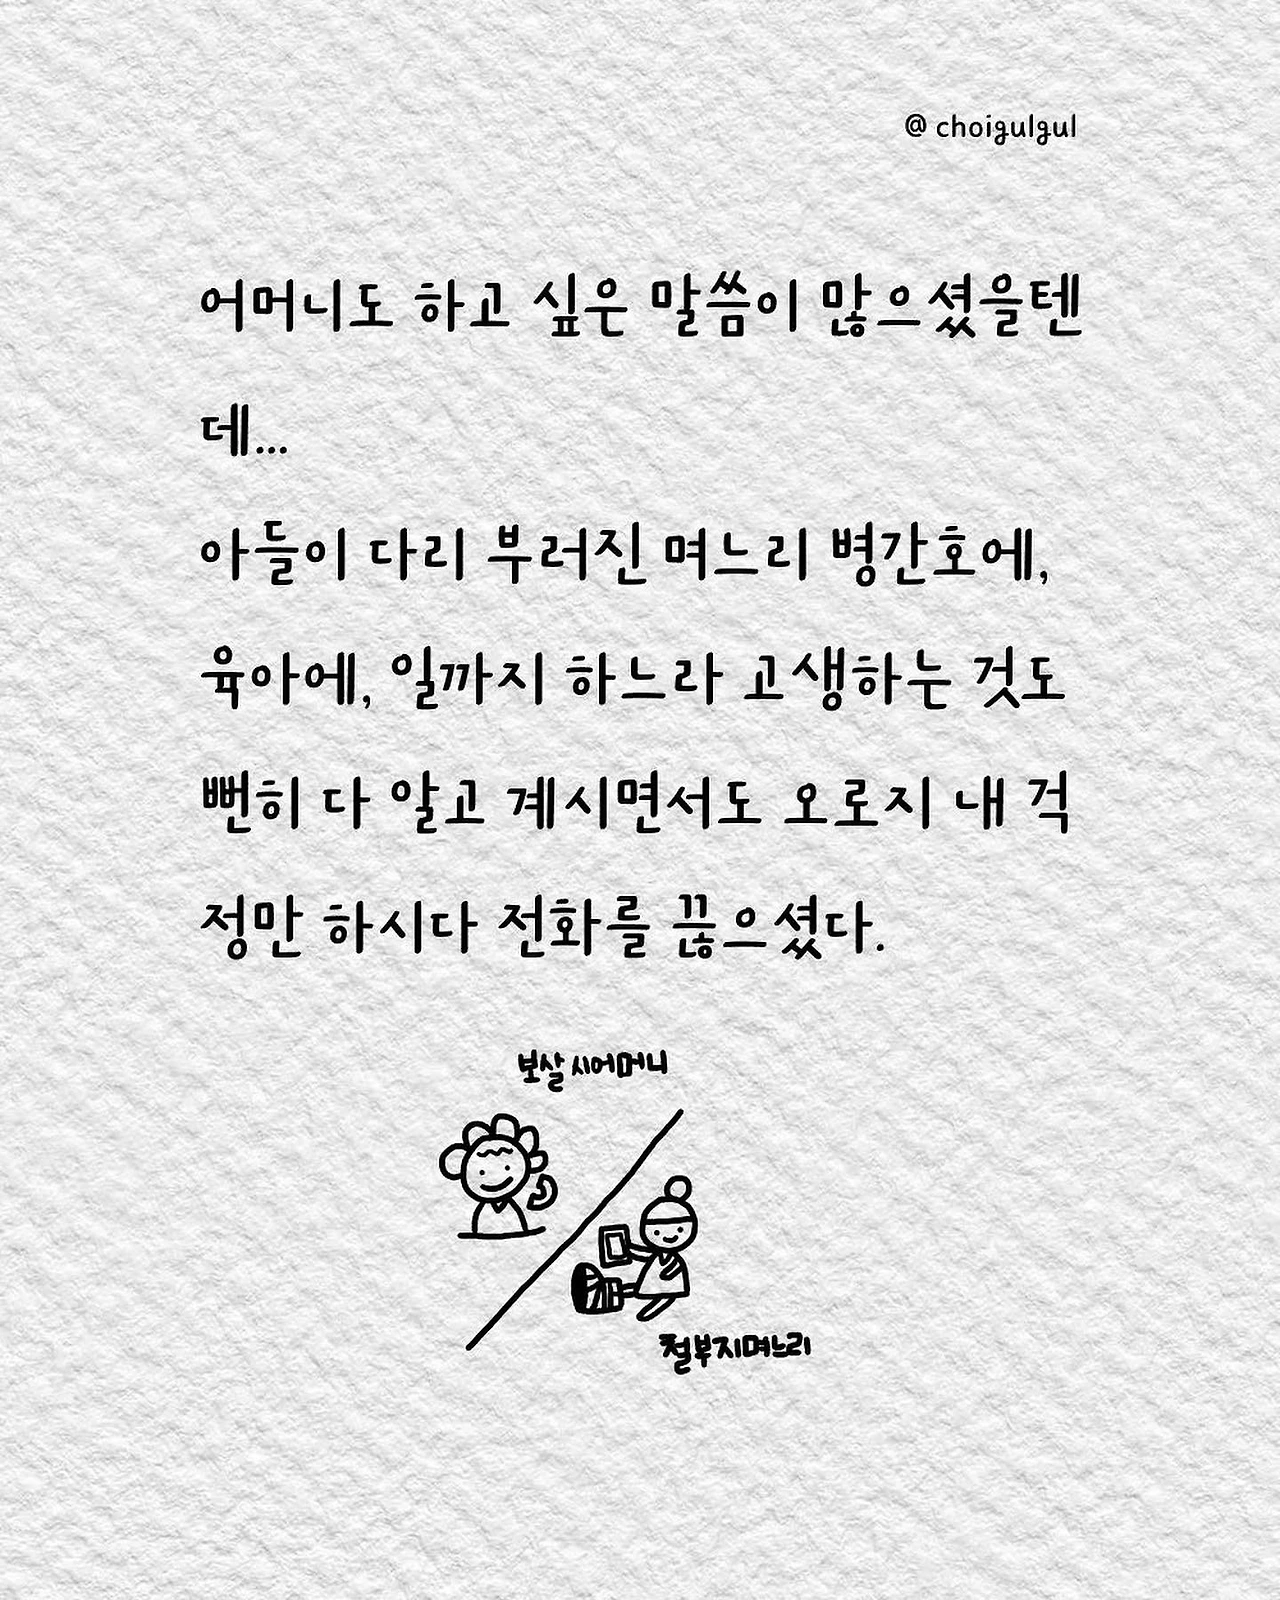 @ choigulgul
어머니도 하고 싶은 말씀이 많으셨을텐
데...
아들이 다리 부러진 며느리 병간호에,
육아에, 일까지 하느라 고생하는 것도
뻔히 다 알고 계시면서도 오로지 내 걱
정만 하시다 전화를 끊으셨다.
보살 시어머니
철부지며느리